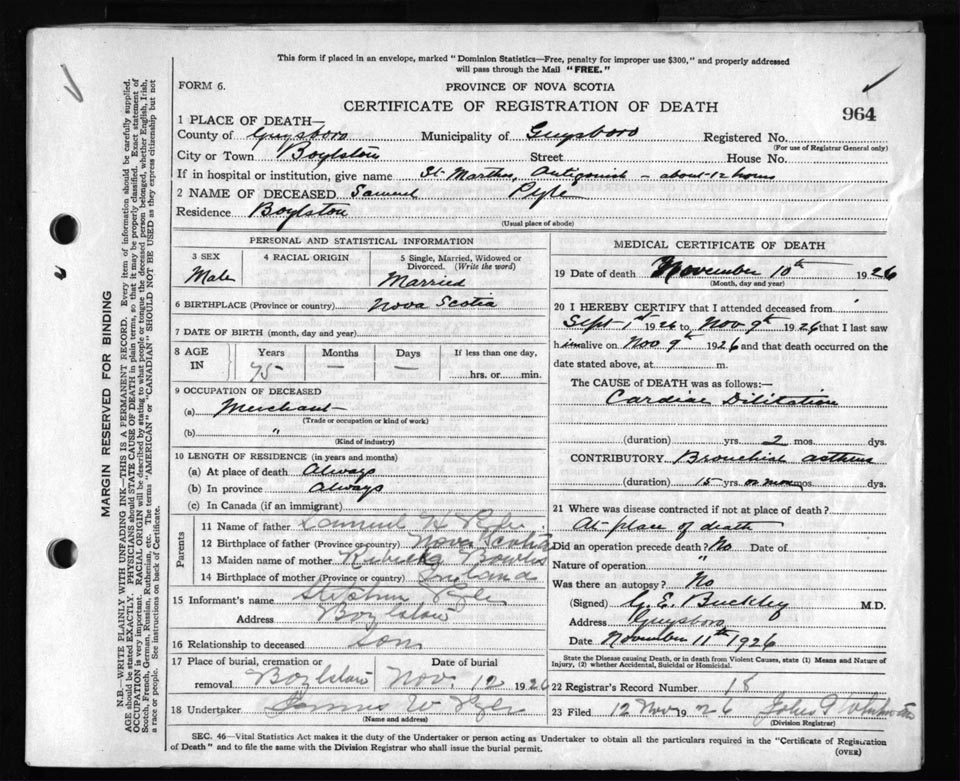 This form if placed in an envelope, marked "Dominion Statistics—Free, penalty for improper use $300," and properly addressed
will pass through the Mail "FREE."
FORM 6.
PROVINCE OF NOVA SCOTIA
CERTIFICATE OF REGISTRATION OF DEATH
964
1 PLACE OF DEATH—
County of Guysboro Municipality of Guysboro Registered No.
(For use of Registrar General only)
City or Town Boylston Street House No.
If in hospital or institution, give name St. Marthas, Antigonish – about 12 hours
2 NAME OF DECEASED Samuel Pyle
Residence Boylston
(Usual place of abode)
PERSONAL AND STATISTICAL INFORMATION
3 SEX 4 RACIAL ORIGIN 5 Single, Married, Widowed or
Divorced. (Write the word)
Male Married
6 BIRTHPLACE (Province or country) Nova Scotia
7 DATE OF BIRTH (month, day and year)
8 AGE IN Years Months Days If less than one day,
75 — — hrs. or min.
9 OCCUPATION OF DECEASED
(a) Merchant
(Trade or occupation or kind of work)
(b) "
(Kind of industry)
10 LENGTH OF RESIDENCE (in years and months)
(a) At place of death Always
(b) In province Always
(c) In Canada (if an immigrant)
Parents
11 Name of father Samuel H Pyle
12 Birthplace of father (Province or country) Nova Scotia
13 Maiden name of mother
14 Birthplace of mother (Province or country) England
15 Informant's name Stephen Pyle
Address Boylston
16 Relationship to deceased Son
17 Place of burial, cremation or Date of burial
removal Boylston Nov. 12 1926
18 Undertaker W Pyle
(Name and address)
MEDICAL CERTIFICATE OF DEATH
19 Date of death November 10th 1926
(Month, day and year)
20 I HEREBY CERTIFY that I attended deceased from
Sept 1st 1926 to Nov 9th 1926 that I last saw
him alive on Nov 9th 1926 and that death occurred on the
date stated above, at m.
The CAUSE of DEATH was as follows:—
Cardiac Dilitation
(duration) yrs. 2 mos. dys.
CONTRIBUTORY Bronchial asthma
(duration) 15 yrs. or more mos. dys.
21 Where was disease contracted if not at place of death?
At place of death
Did an operation precede death? No Date of
Nature of operation "
Was there an autopsy? No
(Signed) G. E. Buckley M.D.
Address Guysboro
Date November 11th 1926
State the Disease causing Death, or in death from Violent Causes, state (1) Means and Nature of
Injury, (2) whether Accidental, Suicidal or Homicidal.
22 Registrar's Record Number 18
23 Filed 12 Nov 1926 John
(Division Registrar)
SEC. 46—Vital Statistics Act makes it the duty of the Undertaker or person acting as Undertaker to obtain all the particulars required in the "Certificate of Registration
of Death" and to file the same with the Division Registrar who shall issue the burial permit.
(OVER)
MARGIN RESERVED FOR BINDING
N.B.—WRITE PLAINLY WITH UNFADING INK—THIS IS A PERMANENT RECORD. Every item of information should be carefully supplied.
AGE should be stated EXACTLY. PHYSICIANS should STATE CAUSE OF DEATH in plain terms, so that it may be properly classified. Exact statement of
OCCUPATION is very important. RACIAL ORIGIN will be described by stating to what people or tongue the deceased person belonged, whether English, Irish,
Scotch, French, German, Russian, Ruthenian, etc. The terms "AMERICAN" or "CANADIAN" SHOULD NOT BE USED as they express citizenship but not
a race or people. See instructions on back of Certificate.